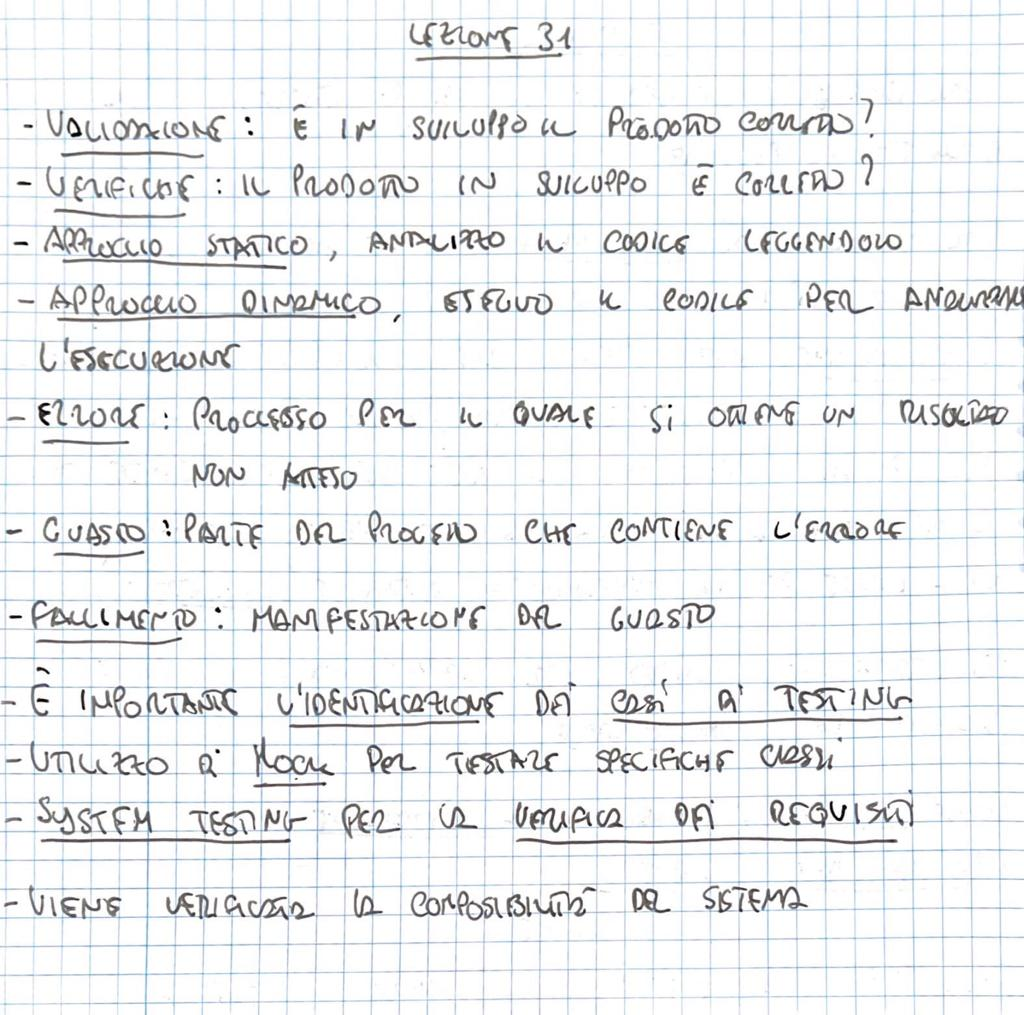 LEZIONE 31
- VALIDAZIONE : È IN SVILUPPO IL PRODOTTO CORRETTO?
- VERIFICHE : IL PRODOTTO IN SVILUPPO È CORRETTO?
- APPROCCIO STATICO, ANALIZZO IL CODICE LEGGENDOLO
- APPROCCIO DINAMICO, ESEGUO IL CODICE PER
L'ESECUZIONE
- ERRORE : PROCESSO PER IL QUALE Si OTTIENE UN RISULTATO
NON ATTESO
- GUASTO : PARTE DEL PROCESSO CHE CONTIENE L'ERRORE
- FALLIMENTO : MANIFESTAZIONE DEL GUASTO
- È IMPORTANTE L'IDENTIFICAZIONE DEi CASi Di TESTING
- UTILIZZO Di MOCK PER TESTARE SPECIFICHE CLASSi
- SYSTEM TESTING PER LA VERIFICA DEi REQUISITi
- VIENE VERIFICATA LA COMPOSIBILITÀ DEL SISTEMA